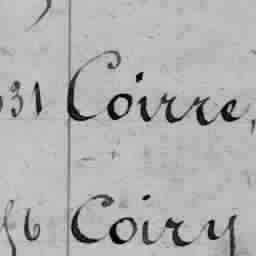 31 Coirre,
56 Coiry